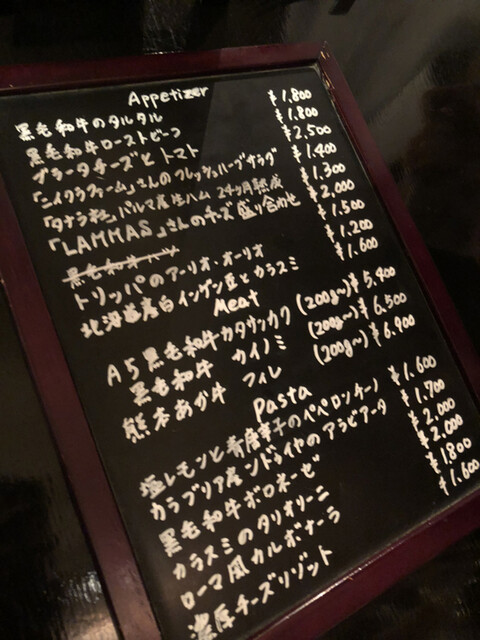 Appetizer
黒毛和牛のタルタル ¥1.800
黒毛和牛ローストビーフ ¥1.800
ブラータチーズとトマト ¥2.500
「ニイクラファーム」さんのフレッシュハーブサラダ ¥1.400
「タナラ社」パルマ産生ハム 24ヶ月熟成 ¥1.300
「LAMMAS」さんのチーズ盛り合わせ ¥2.000
黒毛和牛 ¥1.500
トリッパのアーリオ・オーリオ ¥1.200
北海道産白インゲン豆とカラスミ ¥1.600
Meat
A5黒毛和牛カタサンカク (200g〜) ¥5.400
黒毛和牛 カイノミ (200g〜) ¥6.500
熊本あか牛 フィレ (200g〜) ¥6.900
Pasta
塩レモンと青唐辛子のペペロンチーノ ¥1.600
カラブリア産ンドゥイヤのアラビアータ ¥1.700
黒毛和牛ボロネーゼ ¥2.000
カラスミのタリオリーニ ¥2.000
ローマ風カルボナーラ ¥1800
濃厚チーズリゾット ¥1.600